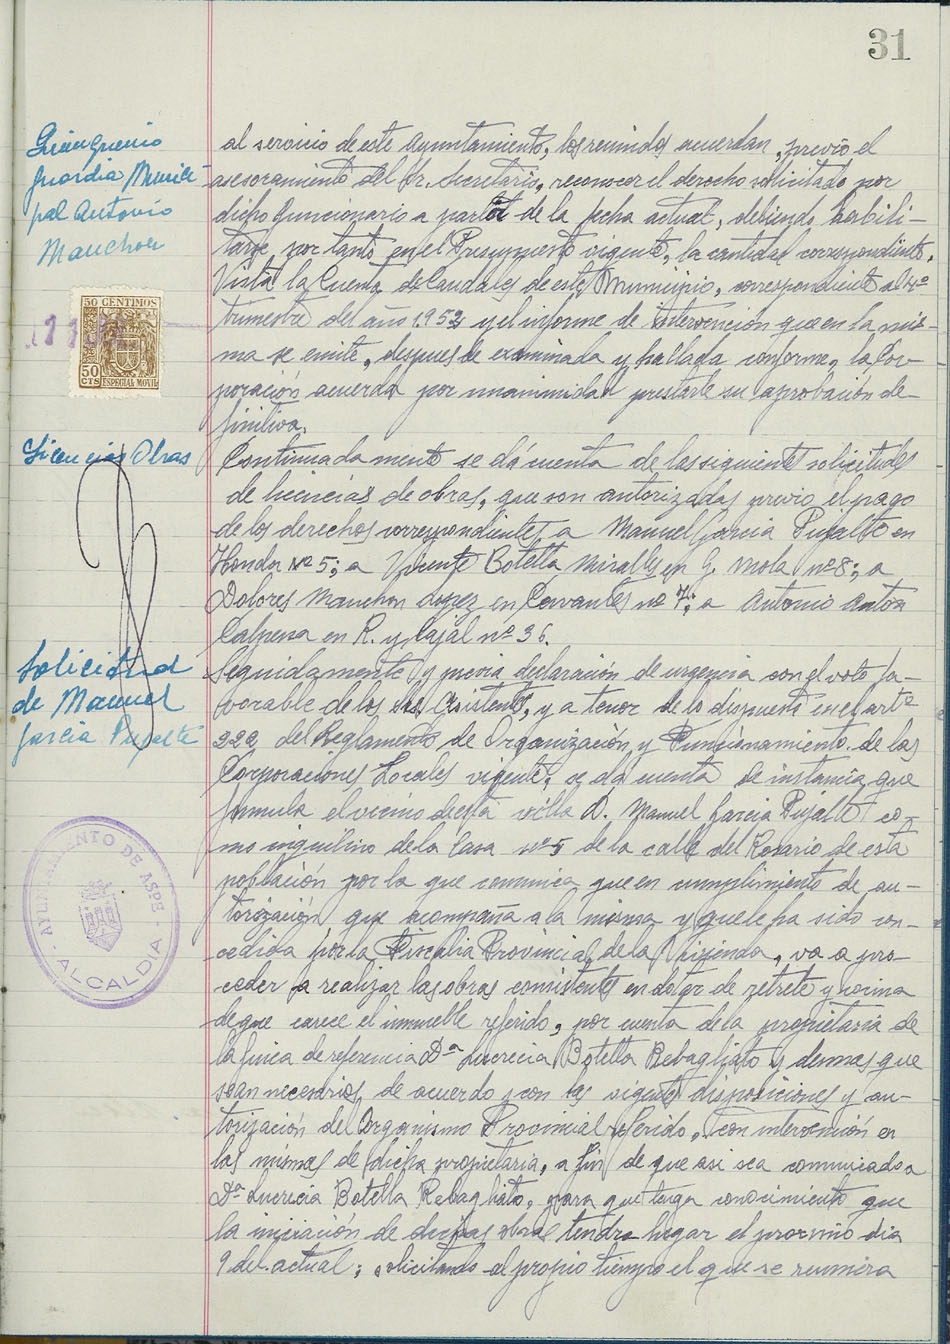 31
Quinquenio
guardia Munici
pal Antonio
Manchon
al servicio de este Ayuntamiento, los reunidos acuerdan, previo el
asesoramiento del Sr. Secretario, reconocer el derecho solicitado por
dicho funcionario a partir de la fecha actual, debiendo habili-
tarse por tanto en el Presupuesto vigente, la cantidad correspondiente.
Vista la Cuenta de Caudales de este Municipio, correspondiente al 4º
trimestre del año 1.952 y el informe de intervención que en la mis-
ma se emite, despues de examinada y hallada conforme, la Cor-
poración acuerda por unanimidad prestarle su aprobación de-
finitiva.
50 CENTIMOS
50
CTS
ESPECIAL MOVIL
Licencias Obras
Continuadamente se dá cuenta de las siguientes solicitudes
de licencias de obras, que son autorizadas previo el pago
de los derechos correspondientes a Manuel Garcia Pujalte en
Honda nº 5; a Vicente Botella Miralles en G. Mola nº 8; a
Dolores Manchon Lopez en Cervantes nº 7; a Antonio Anton
Calpena en R. y Cajal nº 36.
Solicitud
de Manuel
Garcia Pujalte
Seguidamente y previa declaración de urgencia con el voto fa-
vorable de los Asistentes, y a tenor de lo dispuesto en el artº
222 del Reglamento de Organización y Funcionamiento de las
Corporaciones Locales vigente, se da cuenta de instancia que
formula el vecino de esta villa D. Manuel Garcia Pujalte co-
mo inquilino de la Casa nº 5 de la calle del Rosario de esta
población por la que comunica que en cumplimiento de au-
torización que acompaña a la misma y que le ha sido con-
cedida por la Fiscalia Provincial de la Vivienda, va a pro-
ceder a realizar las obras consistentes en dotar de retrete y cocina
de que carece el inmueble referido, por cuenta de la propietaria de
la finca de referencia Dª Lucrecia Botella Rebagliato y demas que
sean necesarias, de acuerdo con las disposiciones y au-
torización del Organismo Provincial referido, con intervención en
las mismas de dicha propietaria, a fin de que asi sea comunicado a
Dª Lucrecia Botella Rebagliato, para que tenga conocimiento que
la iniciación de dichas obras tendra lugar el proximo dia
9 del actual; solicitando al propio tiempo el que se reuniera
AYUNTAMIENTO DE ASPE
- ALCALDIA -